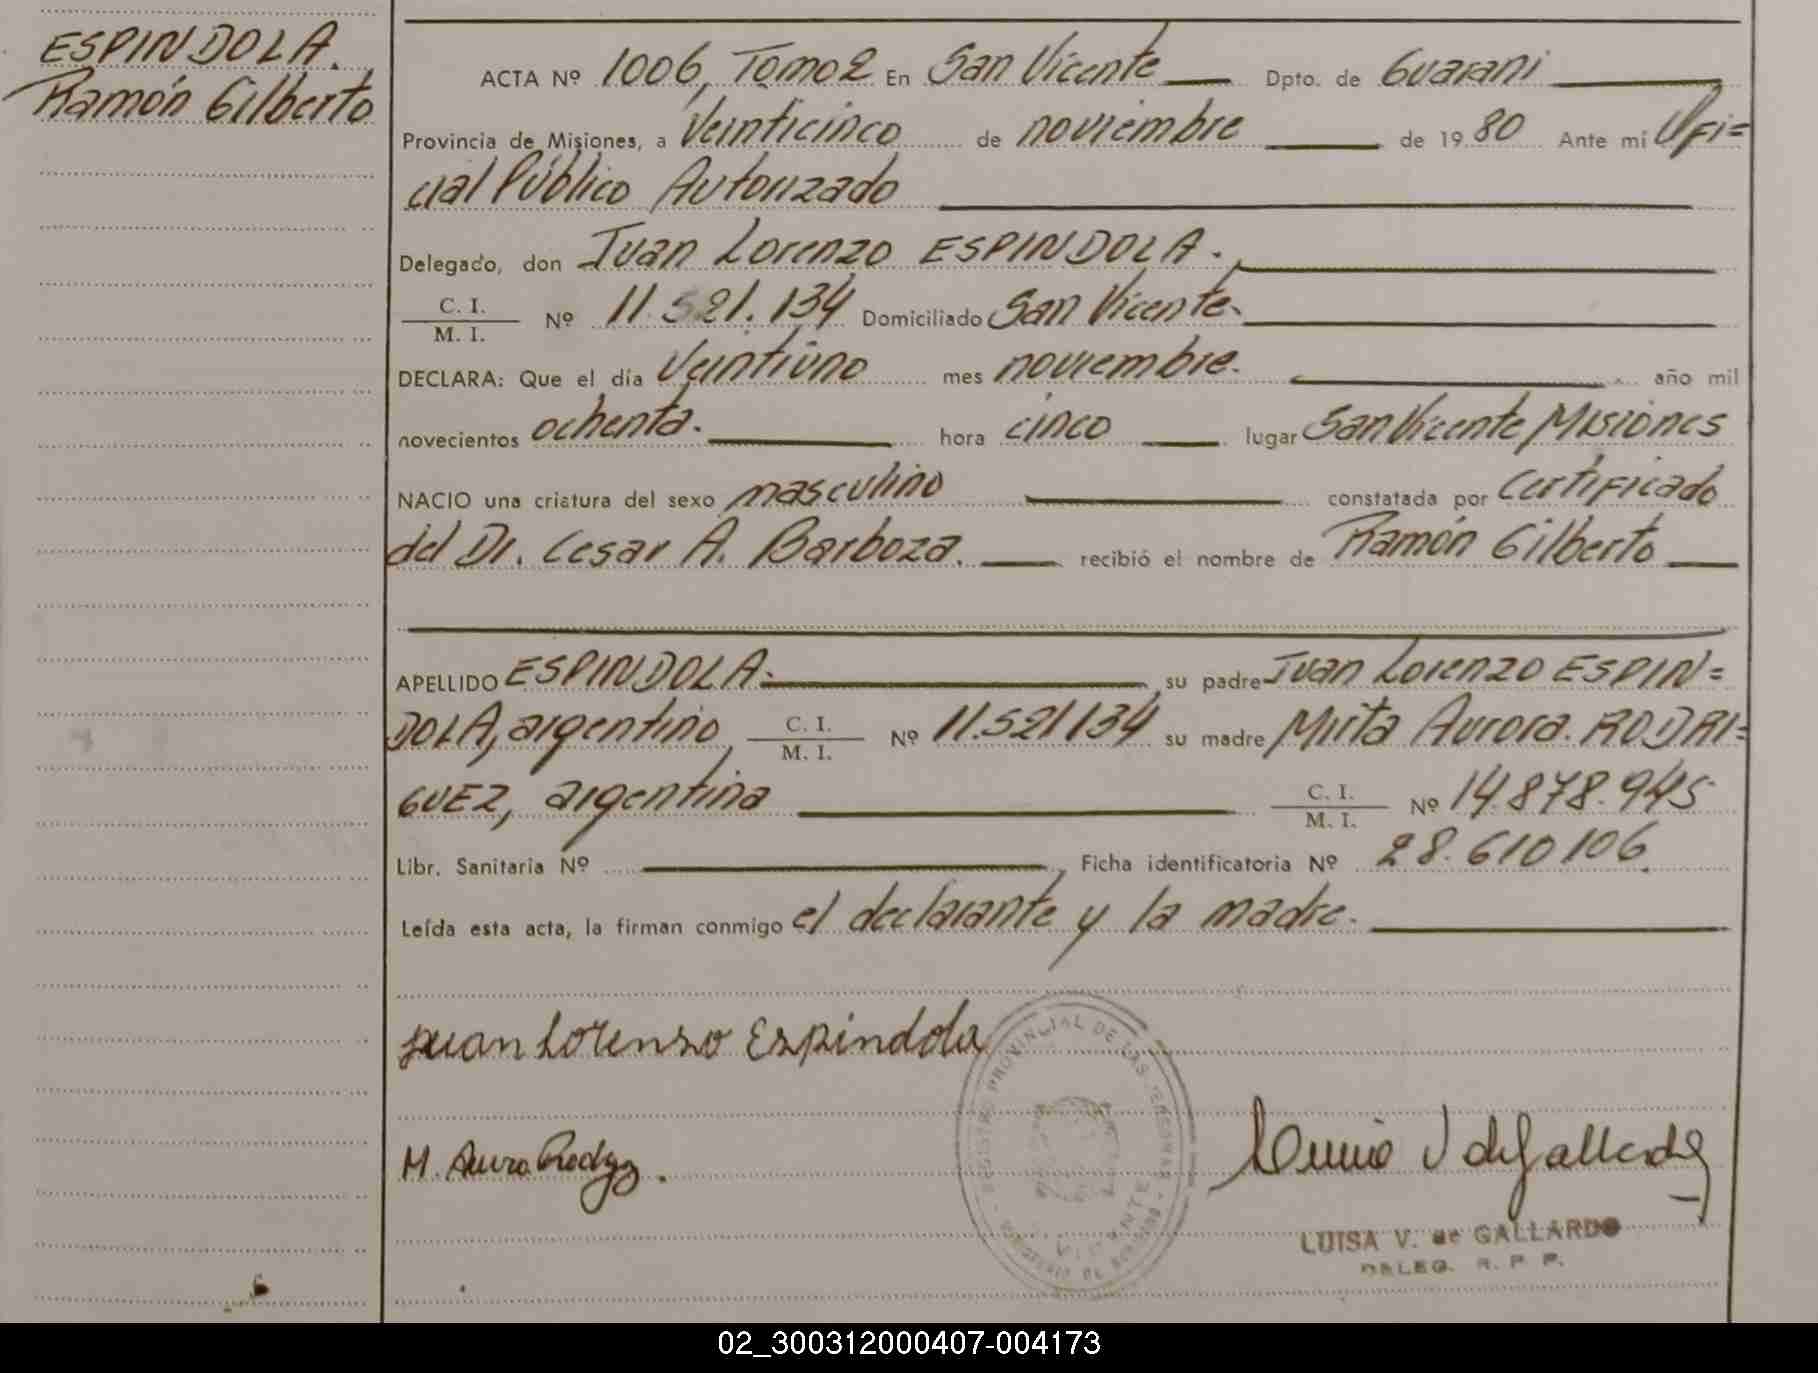 ESPINDOLA.
Ramón Gilberto
ACTA Nº 1006, Tomo 2 En San Vicente Dpto. de Guarani
Provincia de Misiones, a Veinticinco de noviembre de 19 80 Ante mí Ofi=
cial Público Autorizado
Delegado, don Juan Lorenzo ESPINDOLA.
C. I.
M. I. Nº 11.521.134 Domiciliado San Vicente.
DECLARA: Que el día Veintiúno mes noviembre. año mil
novecientos ochenta. hora cinco lugar San Vicente Misiones
NACIO una criatura del sexo masculino constatada por Certificado
del Dr. Cesar A. Barboza. recibió el nombre de Ramón Gilberto
APELLIDO ESPINDOLA. su padre Juan Lorenzo ESPIN=
DOLA, argentino, C. I. M. I. Nº 11.521134 su madre Mirta Aurora RODRI=
GUEZ, argentina C. I. M. I. Nº 14.878.945
Libr. Sanitaria Nº Ficha identificatoria Nº 28.610106.
Leída esta acta, la firman conmigo el declarante y la madre.
Juan Lorenzo Espindola
REGISTRO PROVINCIAL DE LAS PERSONAS
VICENTE
M. Aurora Rodgz.
LUISA V. de GALLARDO
DELEG. R. P. P.
02_300312000407-004173